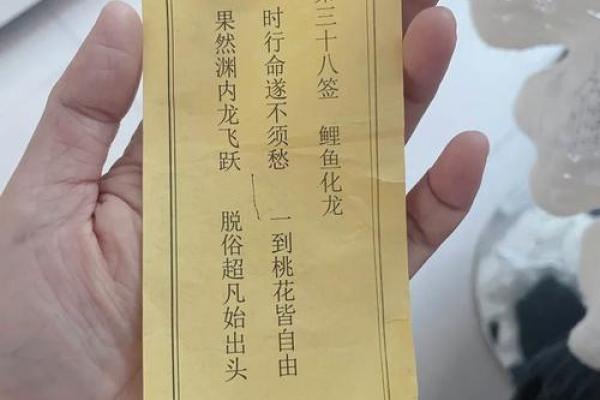 第三十八签 鲤鱼化龙
时行命遂不须愁 一到桃花皆自由
果然渊内龙飞跃 脱俗超凡始出头